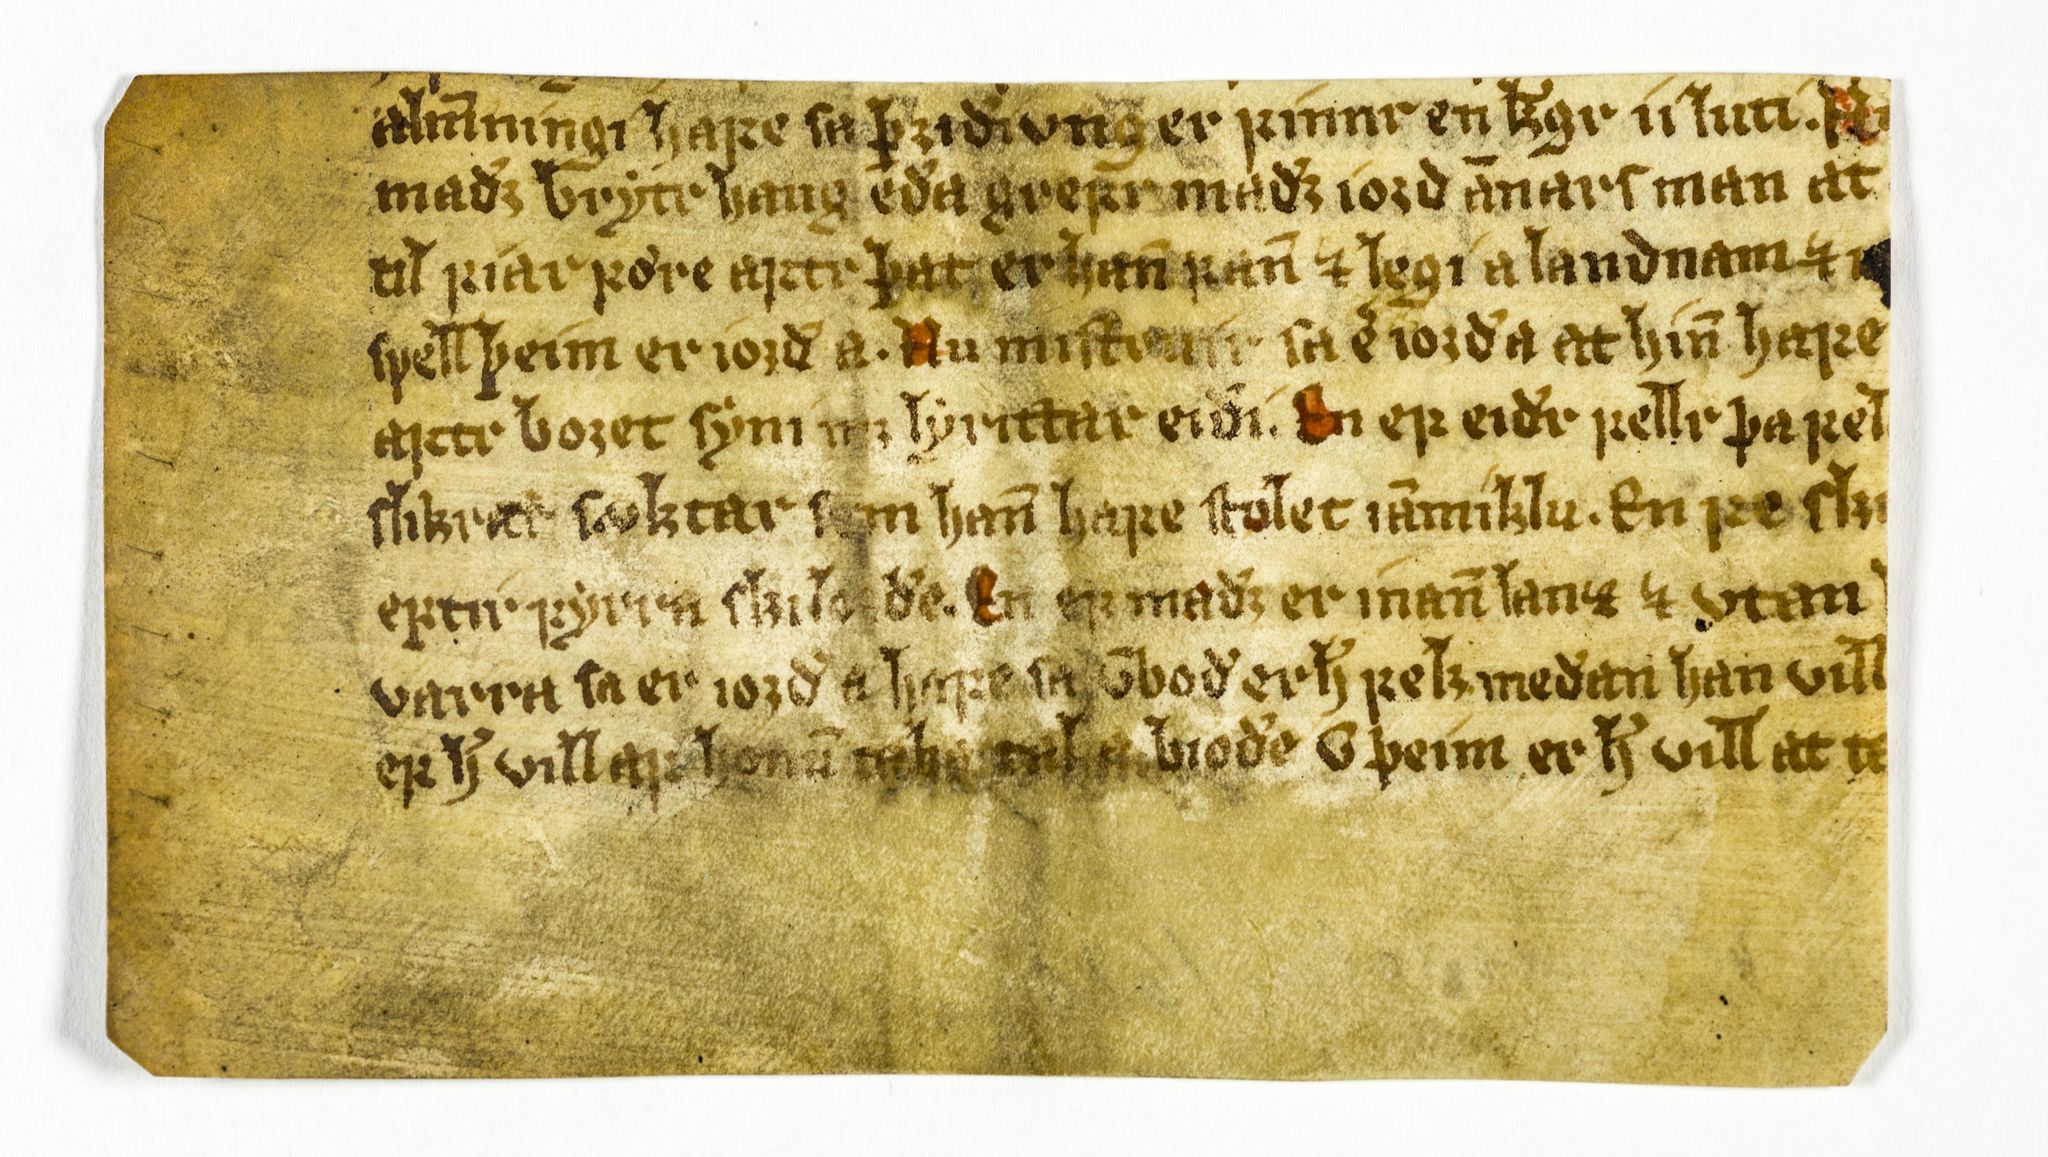 alm̄ningi hafe sa þꝛiðivng er finnr en kgꝛ ii luti. En
maðꝛ brytr haug eða grefr maðꝛ ioꝛð an̄ars man at
til fiar fóre aftr þat er han̄ fan̄ ⁊ legi a landnam ⁊
spell þeim er ioꝛð a. Nu mistruir sa er ioꝛð a at hin̄ hafe
aftr boꝛet syni firꝛ lyrittar eiði. En ef eiðr fellr þa fel
slikrar sóktar sem han̄ hafe stolet iam̄miklu. En fe sk
eftir fyrra skilorðe. En ef maðꝛ er in̄an lanz ⁊ vtan
varra sa er ioꝛð a hafe sa v̄boð er h̄ fek meðan han vill
ef h̄ vill af honū bioðe v̄ þeim er h̄ vill at